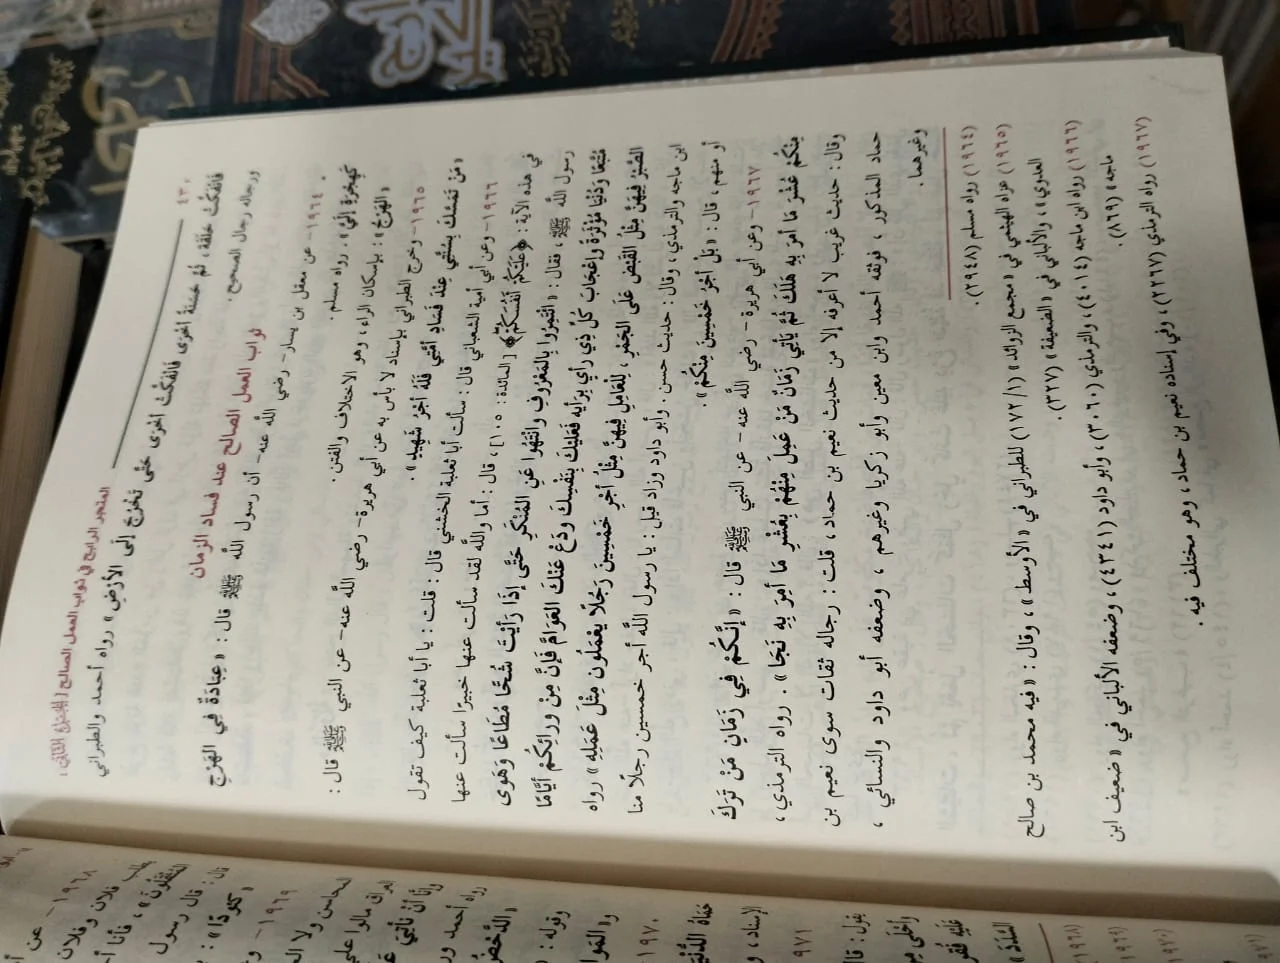 ٤٣٠
المتجر الرابح في ثواب العمل الصالح (الجزء الثاني)
فَانْفَكَّتْ حَلْقَةٌ، ثُمَّ حَسَنَةً أُخْرَى فَانْفَكَّتْ أُخْرَى حَتَّى تَخْرُجَ إِلَى الأَرْضِ» رواه أحمد والطبراني
ورجاله رجال الصحيح.
ثواب العمل الصالح عند فساد الزمان
١٩٦٤- عن معقل بن يسار- رضي الله عنه- أن رسول الله ﷺ قال: «عِبَادَةٌ فِي الهَرْجِ
كَهِجْرَةٍ إِلَيَّ»، رواه مسلم.
«الهَرْجُ»: بإسكان الراء، وهو الاختلاف والفتن.
١٩٦٥- وخرج الطبراني بإسناد لا بأس به عن أبي هريرة- رضي الله عنه- عن النبي ﷺ قال:
«مَنْ تَمَسَّكَ بِسُنَّتِي عِنْدَ فَسَادِ أُمَّتِي فَلَهُ أَجْرُ شَهِيدٍ».
١٩٦٦- وعن أبي أمية الشعباني قال: سألت أبا ثعلبة الخشني قال: قلت: يا أبا ثعلبة كيف تقول
في هذه الآية: ﴿عَلَيْكُمْ أَنْفُسَكُمْ﴾ [المائدة: ١٠٥]، قال: أما والله لقد سألت عنها خبيرًا سألت عنها
رسول الله ﷺ، فقال: «ائْتَمِرُوا بِالمَعْرُوفِ وَانْتَهُوا عَنِ المُنْكَرِ حَتَّى إِذَا رَأَيْتَ شُحًّا مُطَاعًا وَهَوًى
مُتَّبَعًا وَدُنْيَا مُؤْثَرَةً وَإِعْجَابَ كُلِّ ذِي رَأْيٍ بِرَأْيِهِ فَعَلَيْكَ بِنَفْسِكَ وَدَعْ عَنْكَ العَوَامَّ فَإِنَّ مِنْ وَرَائِكُمْ أَيَّامًا
الصَّبْرُ فِيهِنَّ مِثْلُ القَبْضِ عَلَى الجَمْرِ، لِلْعَامِلِ فِيهِنَّ مِثْلُ أَجْرِ خَمْسِينَ رَجُلًا يَعْمَلُونَ مِثْلَ عَمَلِهِ» رواه
ابن ماجه والترمذي، وقال: حديث حسن. وأبو داود وزاد قيل: يا رسول الله أجر خمسين رجلًا منا
أو منهم، قال: «بَلْ أَجْرُ خَمْسِينَ مِنْكُمْ».
١٩٦٧- وعن أبي هريرة- رضي الله عنه- عن النبي ﷺ قال: «إِنَّكُمْ فِي زَمَانٍ مَنْ تَرَكَ
مِنْكُمْ عُشْرَ مَا أُمِرَ بِهِ هَلَكَ ثُمَّ يَأْتِي زَمَانٌ مَنْ عَمِلَ مِنْهُمْ بِعُشْرِ مَا أُمِرَ بِهِ نَجَا». رواه الترمذي،
وقال: حديث غريب لا أعرفه إلا من حديث نعيم بن حماد، قلت: رجاله ثقات سوى نعيم بن
حماد المذكور، فوثقه أحمد وابن معين وأبو زكريا وغيرهم، وضعفه أبو داود والنسائي،
وغيرهما.
(١٩٦٤) رواه مسلم (٢٩٤٨).
(١٩٦٥) عزاه الهيثمي في «مجمع الزوائد» (١/ ١٧٢) للطبراني في «الأوسط»، وقال: «فيه محمد بن صالح
العدوي»، والألباني في «الضعيفة» (٣٢٧).
(١٩٦٦) رواه ابن ماجه (٤٠١٤)، والترمذي (٣٠٦٠)، وأبو داود (٤٣٤١)، وضعفه الألباني في «ضعيف ابن
ماجه» (٨٦٩).
(١٩٦٧) رواه الترمذي (٢٢٦٧)، وفي إسناده نعيم بن حماد، وهو مختلف فيه.